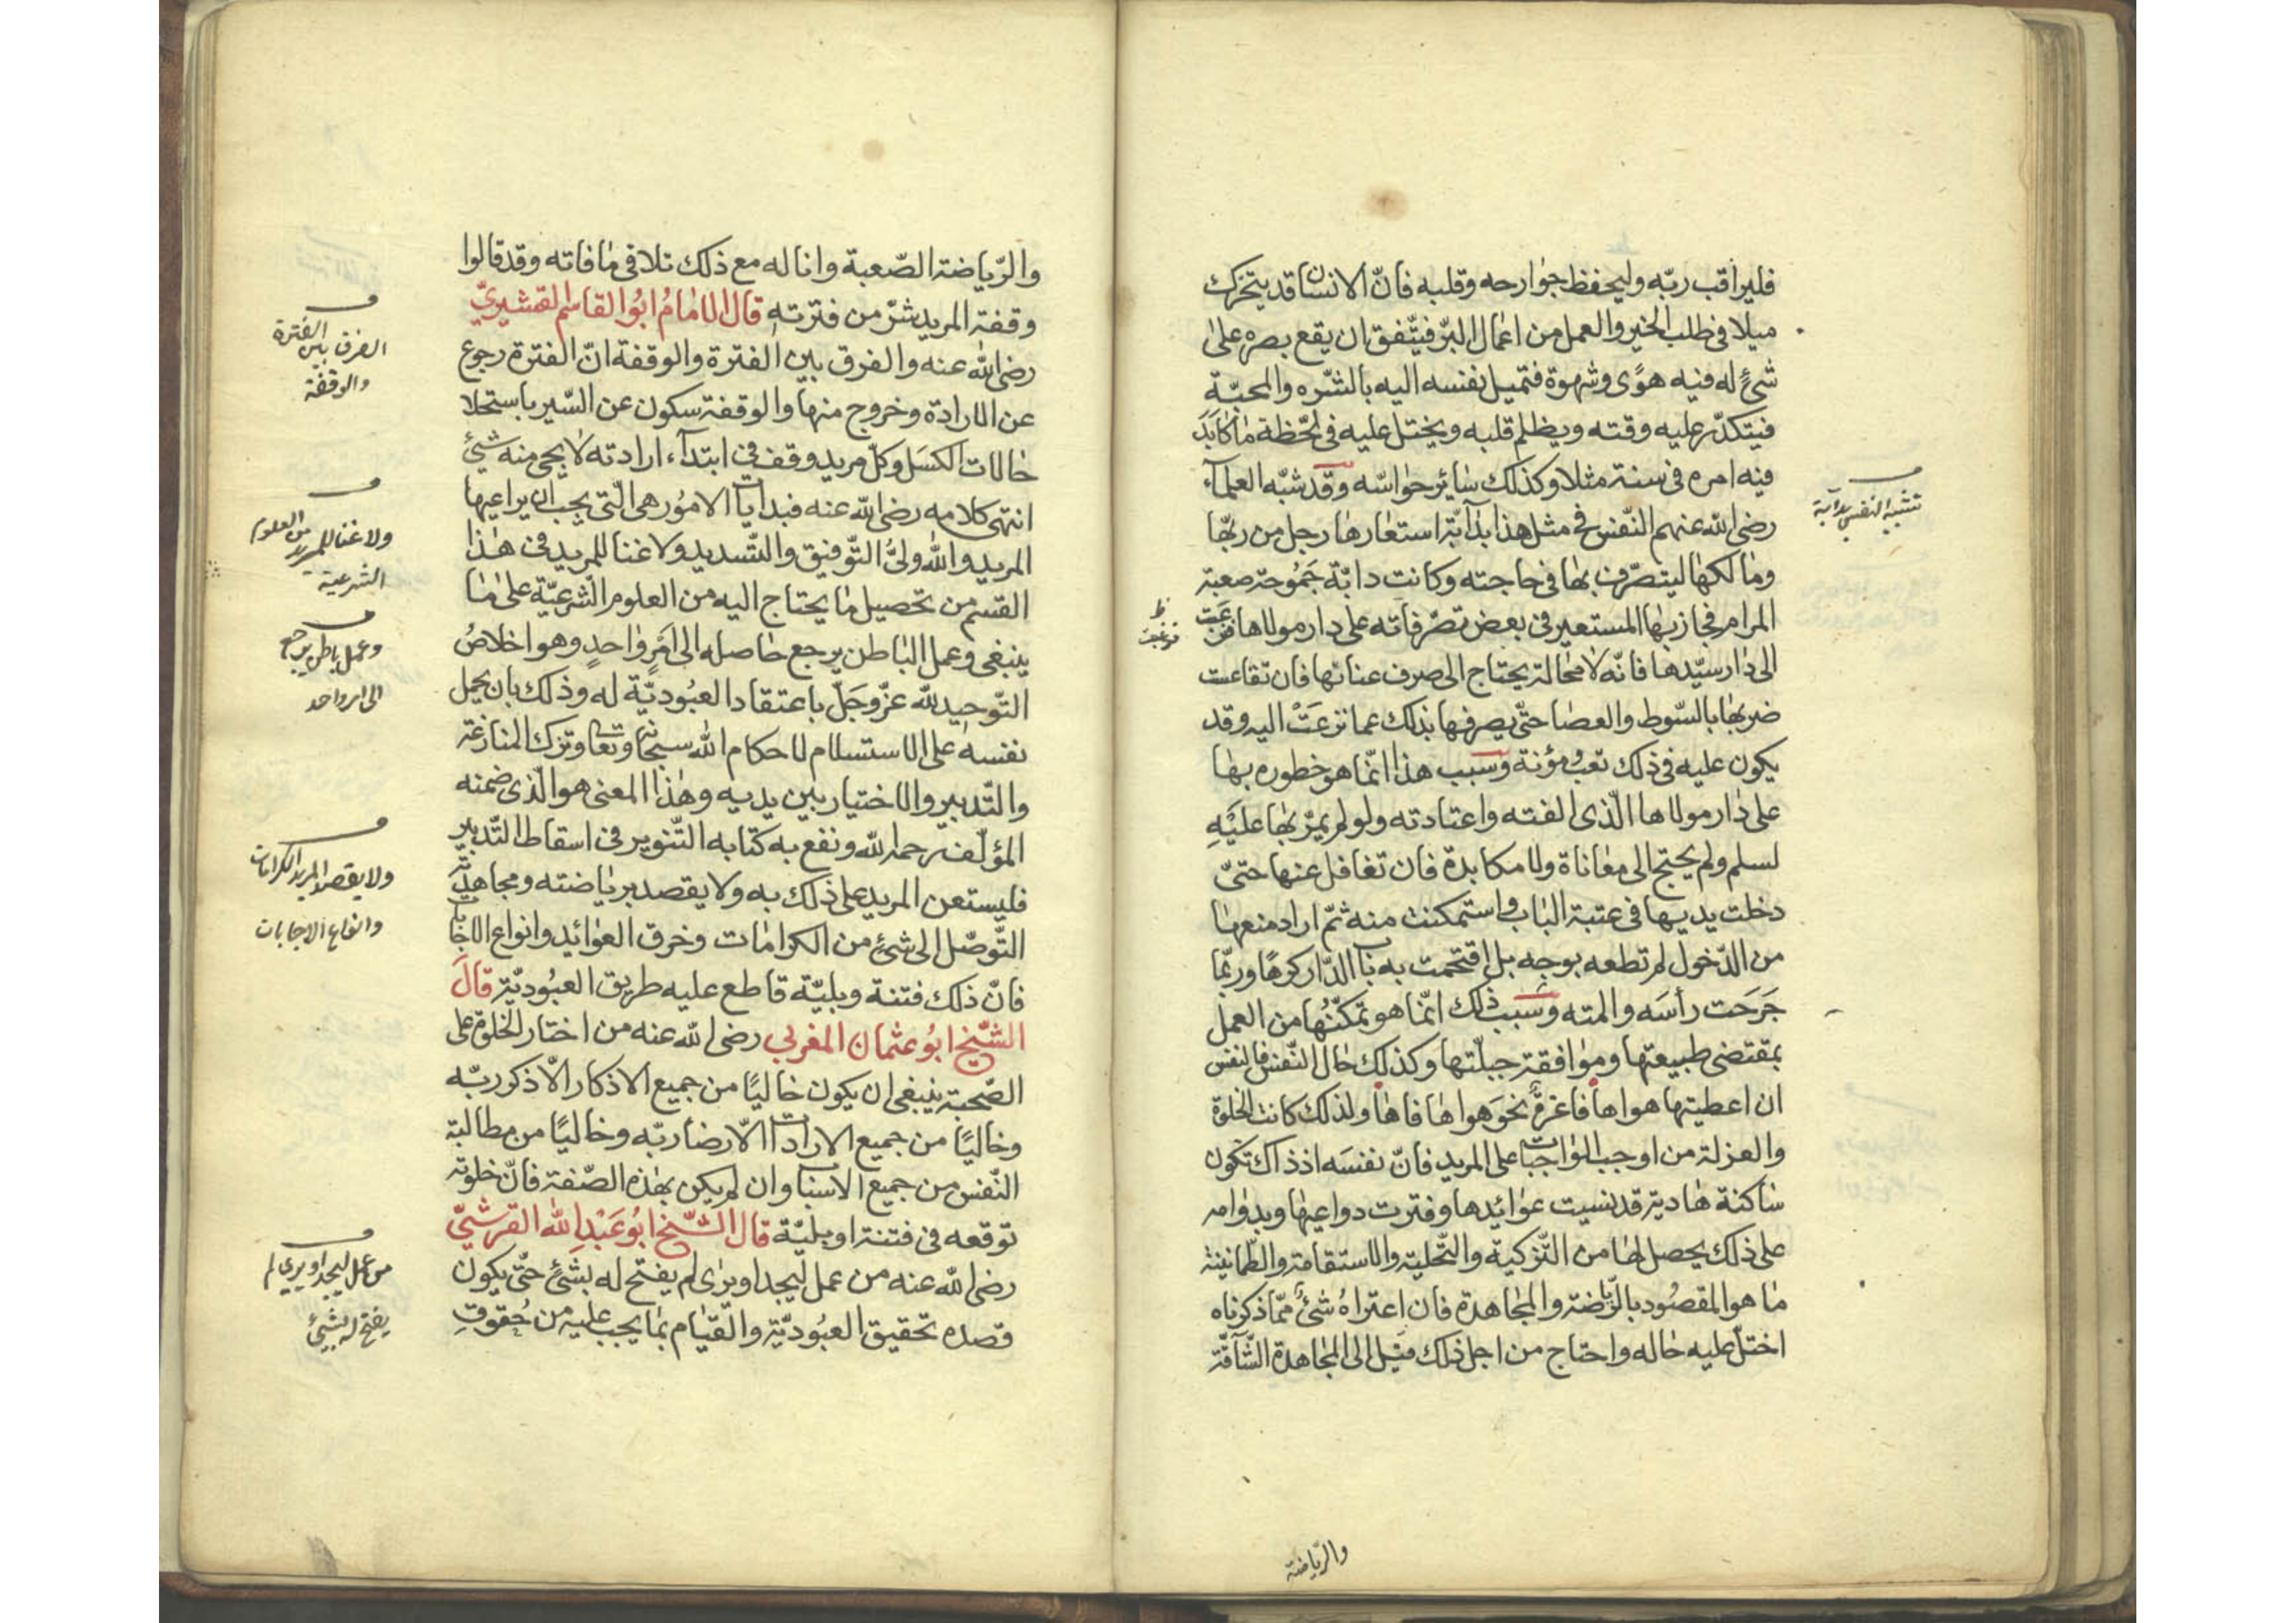 فليراقب ربّه وليحفظ جوارحه وقلبه فانّ الانسان قد يتحرّك
ميلا فى طلب الخير والعمل من اعمال البرّ فيتّفق ان يقع بصره على
شئ له فيه هوًى وشهوة فتميل نفسه اليه بالشّره والمحبّة
فيتكدّر عليه وقته ويظلم قلبه ويختل عليه فى لحظة ما كابَدَ
فيه امره فى سنة مثلا وكذلك سائر حواسّه وقد شبّه العلمآء
رضى الله عنهم النّفس فى مثل هذا بدآبّة استعارها رجل من ربّها
ومالكها ليتصرّف بها فى حاجته وكانت دابّة جَمُوحة صعبة
المرام فجاز بها المستعير فى بعض تصرّفاته على دار مولاها فنزعت
الى دار سيّدها فانّه لا محالة يحتاج الى صرف عنانها فان تقاعست
ضربها بالسّوط والعصا حتّى يصرفها بذلك عما نزعَتْ اليه وقد
يكون عليه فى ذلك تعبُ مؤنة وسبب هذا انّما هو خطوره بها
على دار مولاها الّذى الفته واعتادته ولو لم يمرّ بها عليْهِ
لسلم ولم يحتج الى معاناة ولا مكابدة فان تغافل عنها حتّى
دخلت يديها فى عتبة الباب واستمكنت منه ثمّ اراد منعها
من الدّخول لم تطعه بوجه بل اقتحمت به باب الدّار كرهًا وربّما
جَرَحت رأسَه والمته وسبب ذلك انّما هو تمكّنُها من العمل
بمقتضى طبيعتها وموافقة جبلّتها وكذلك حال النّفس فالنفس
ان اعطيتها هواها فاغرةٌ نحوَ هواها فاها ولذلك كانت الخلوة
والعزلة من اوجب الواجبات على المريد فانّ نفسَه اذ ذاك تكون
ساكنة هادية قد نسيت عوائدها وفترت دواعيها وبدوامه
على ذلك يحصل لها من التّزكية والتّحلية والاستقامة والطّمانينة
ما هو المقصُود بالرّياضة والمجاهدة فان اعتراهُ شئٌ ممّا ذكرناه
اختلّ عليه حاله واحتاج من اجل ذلك الى المجاهدة الشّآقّة
تشبيه النفس بدآبة
ظ
فنزعت
والرّياضة
والرّياضة الصّعبة وانا له مع ذلك تلافى ما فاته وقد قالوا
وقفة المريد شرّ من فترته قال الامامُ ابُو القاسم القشيرىّ
رضى الله عنه والفرق بين الفترة والوقفة انّ الفترة رجوع
عن الارادة وخروج منها والوقفة سكون عن السّير باستحلا
حالات الكسَل وكلّ مريد وقف فى ابتدآء ارادته لا يجئ منه شئ
انتهى كلامه رضى الله عنه فبدايات الامُور هى الّتى يجب ان يراعيها
المريد والله ولىُّ التّوفيق والتّسديد ولا غنا للمريد فى هذا
القسم من تحصيل ما يحتاج اليه من العلوم الشّرعيّة على ما
ينبغى وعمل الباطن يرجع حاصله الى امرٍ واحدٍ وهو اخلاصُ
التّوحيد لله عزّ وجَلّ باعتقاد العبُوديّة له وذلك بان يحمل
نفسه على الاستسلام لاحكام الله سبحانه وتعالى وترك المنازعة
والتّدبير والاختيار بين يديه وهذا المعنى هو الّذى ضمنه
المؤلّف رحمه الله ونفع به كتابه التّنوير فى اسقاط التّدبير
فليستعن المريد على ذلك به ولا يقصد برياضته ومجاهدته
التّوصّل الى شئ من الكرامات وخرق العوائد وانواع الاجابات
فانّ ذلك فتنة وبليّة قاطع عليه طريق العبُوديّة قالَ
الشّيخ ابُو عثمان المغربى رضى الله عنه من اختار الخلوة على
الصّحبة ينبغى ان يكون خاليًا من جميع الاذكار الّا ذكر ربّه
وخاليًا من جميع الارادات الّا رضا ربّه وخاليًا من مطالبة
النّفس من جميع الاسباب وان لم يكن بهذه الصّفة فانّ خلوته
توقعه فى فتنة او بليّة قال الشّيخ ابُو عَبْدِ الله القرشىّ
رضى الله عنه من عمل ليجد او يرى لم يفتح له بشئ حتّى يكون
قصده تحقيق العبُوديّة والقيام بما يجب عليه من حُقوقِ
الفرق بين الفترة
والوقفة
ولا غنا للمريد من العلوم
الشرعية
وعمل باطن يرجع
الى امر واحد
ولا يقصد المريد الكرامات
وانواع الاجابات
من عمل ليجد او يرى لم
يفتح له بشئ